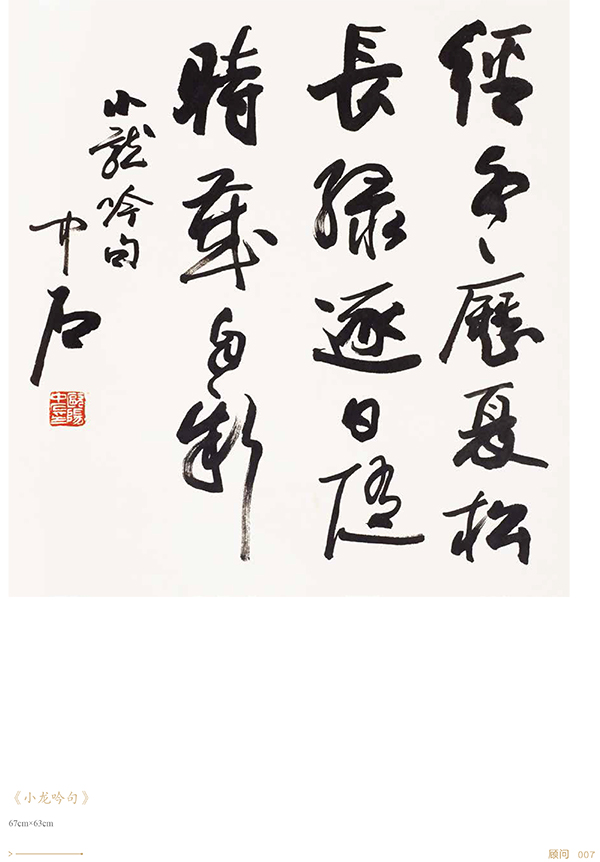 經冬歷夏松
長綠逐日隨
時歲自新
小龍吟句
中石
歐陽中石
《小龙吟句》
67cm×63cm
顾问 007